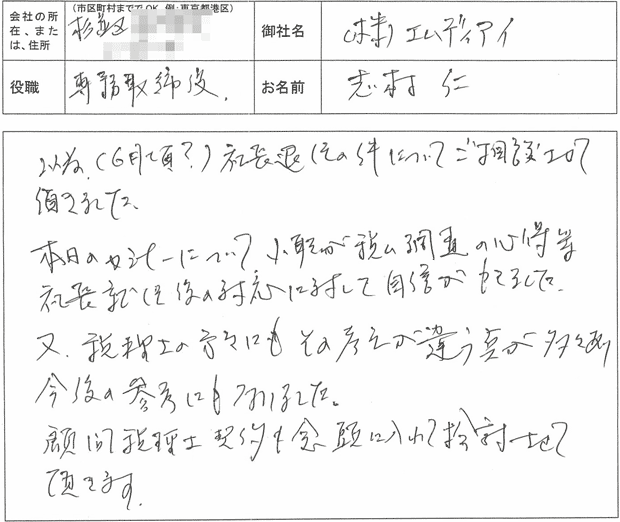 会社の所在、または、住所
(市区町村まででOK 例:東京都港区)
杉並区
御社名
(株)エムディアイ
役職
専務取締役.
お名前
志村 仁
以前、(6月頃?)社長退任の件についてご相談させて
頂きました。
本日のセミナーについて 小職が税ム調査の心得等
社長就任後の対応に対して自信がもてました。
又、税理士の方々にもその考えが違う点が多々あり
今後の参考にもなりました。
顧問税理士契約も念頭に入れて検討させて
頂きます.